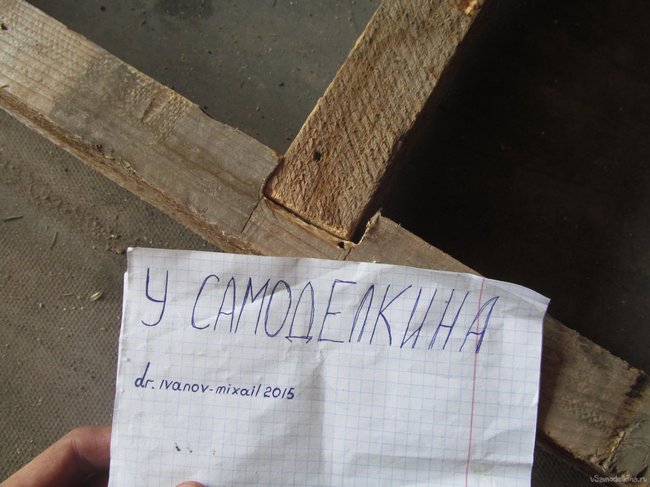 У САМОДЕЛКИНА
dr. ivanov-mixail 2015
uSamodelkina.ru